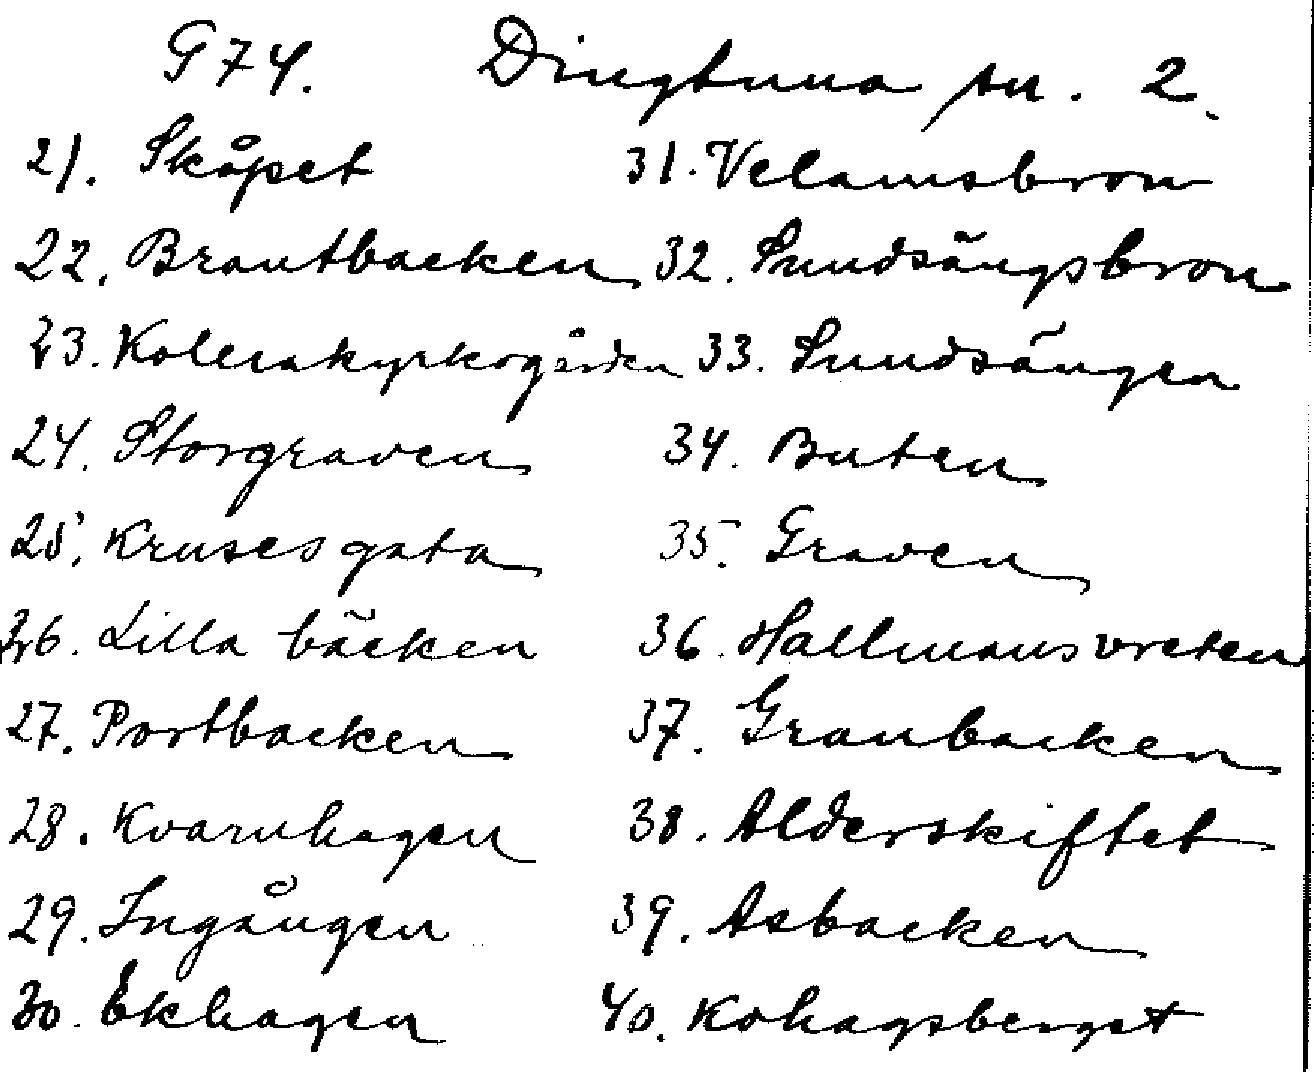 G74. Dingtuna sn. 2.
21. Skåpet
22. Brantbacken
23. Kolerakyrkogården
24. Storgraven
25. Kruses gata
26. Lilla bäcken
27. Portbacken
28. Kvarnhagen
29. Ingången
30. Ekhagen
31. Velamsbron
32. Sundsängsbron
33. Sundsängen
34. Buten
35. Graven
36. Hallmans vreten
37. Granbacken
38. Alderskiftet
39. Asbacken
40. Kohagsberget